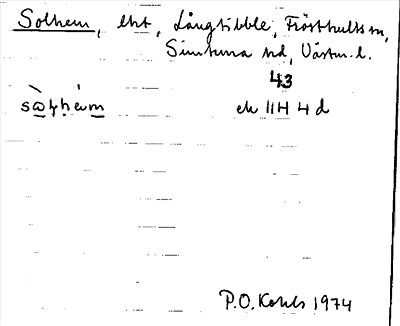 Solhem, lht, Långtibble, Frösthults sn,
Simtuna hd, Västm. l.
43
ek 11H 4 d
P.O. Kohls 1974